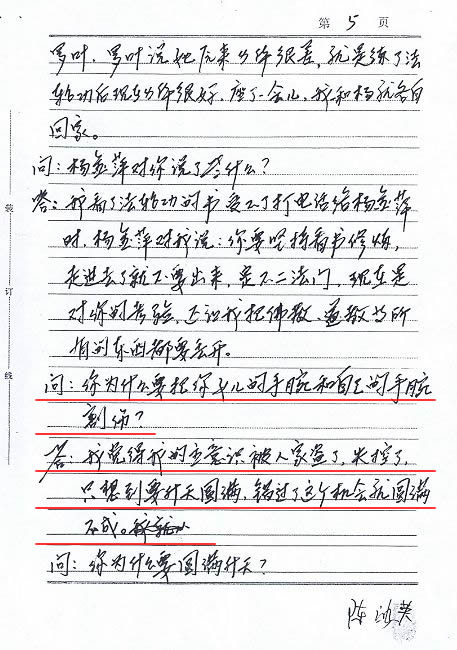 第 5 页
罗叶，罗叶说她原来身体很差，就是练了法
轮功后现在身体很好，座了一会儿，我和杨就各自
回家。
问：杨金萍对你说了些什么？
答：我看了法轮功的书受不了打电话给杨金萍
时，杨金萍对我说：你要坚持看书修炼，
走进去了就不要出来，是不二法门，现在是
对你的考验，还说我把佛教、道教的所
有的东西都要丢开。
问：你为什么要把你女儿的手腕和自己的手腕
割伤？
答：我觉得我的主意识被人家盗了，失控了，
只想到要升天圆满，错过了这个机会就圆满
不成。
问：你为什么要圆满升天？
陈 英
装
订
线